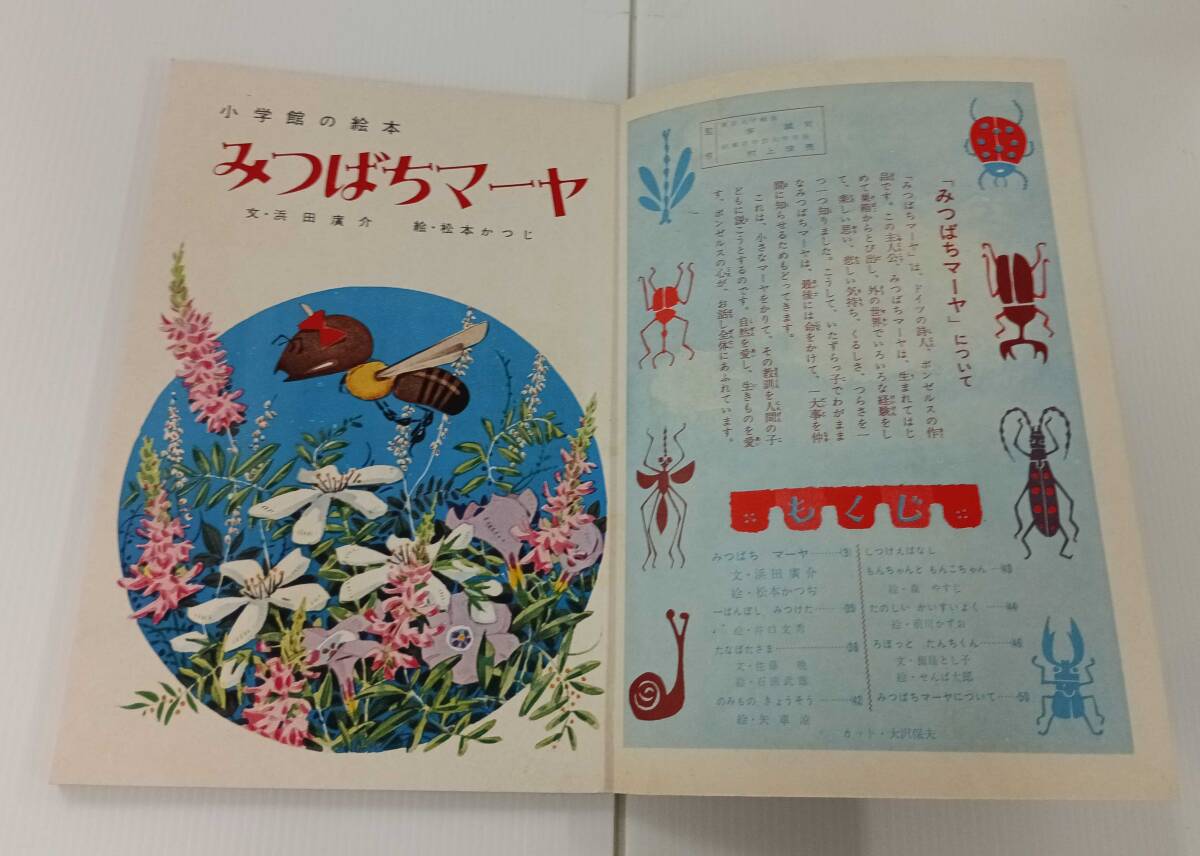 小学館の絵本
みつばちマーヤ
文・浜田廣介　絵・松本かつじ
「みつばちマーヤ」について
「みつばちマーヤ」は、ドイツの詩人、ボンゼルスの作
品です。この主人公、みつばちマーヤは、生まれてはじ
めて巣箱からとび出し、外の世界でいろいろな経験をし
て、楽しい思い、悲しい気持、くるしさ、つらさを一
つ一つ知りました。こうして、いたずらっ子でわがまま
なみつばちマーヤは、最後には命をかけて、一大事を仲
間に知らせるためもどってきます。
これは、小さなマーヤをかりて、その教訓を人間の子
どもに説こうとするのです。自然を愛し、生きものを愛
す、ボンゼルスの心が、お話し全体にあふれています。
もくじ
みつばち　マーヤ………(3)
文・浜田廣介
絵・松本かつぢ
一ばんぼし　みつけた……
絵・井口文秀
たなばたさま
文・佐藤
絵・石田武雄
のみもの　きょうそう……42
絵・矢車涼
しつけえばなし
もんちゃんと　もんこちゃん
絵・森　やすじ
たのしい　かいすいよく……44
絵・前川かずお
ろぼっと　たんちくん……46
文・飯島とし子
絵・せんば太郎
みつばちマーヤについて……50
カット・大沢保夫